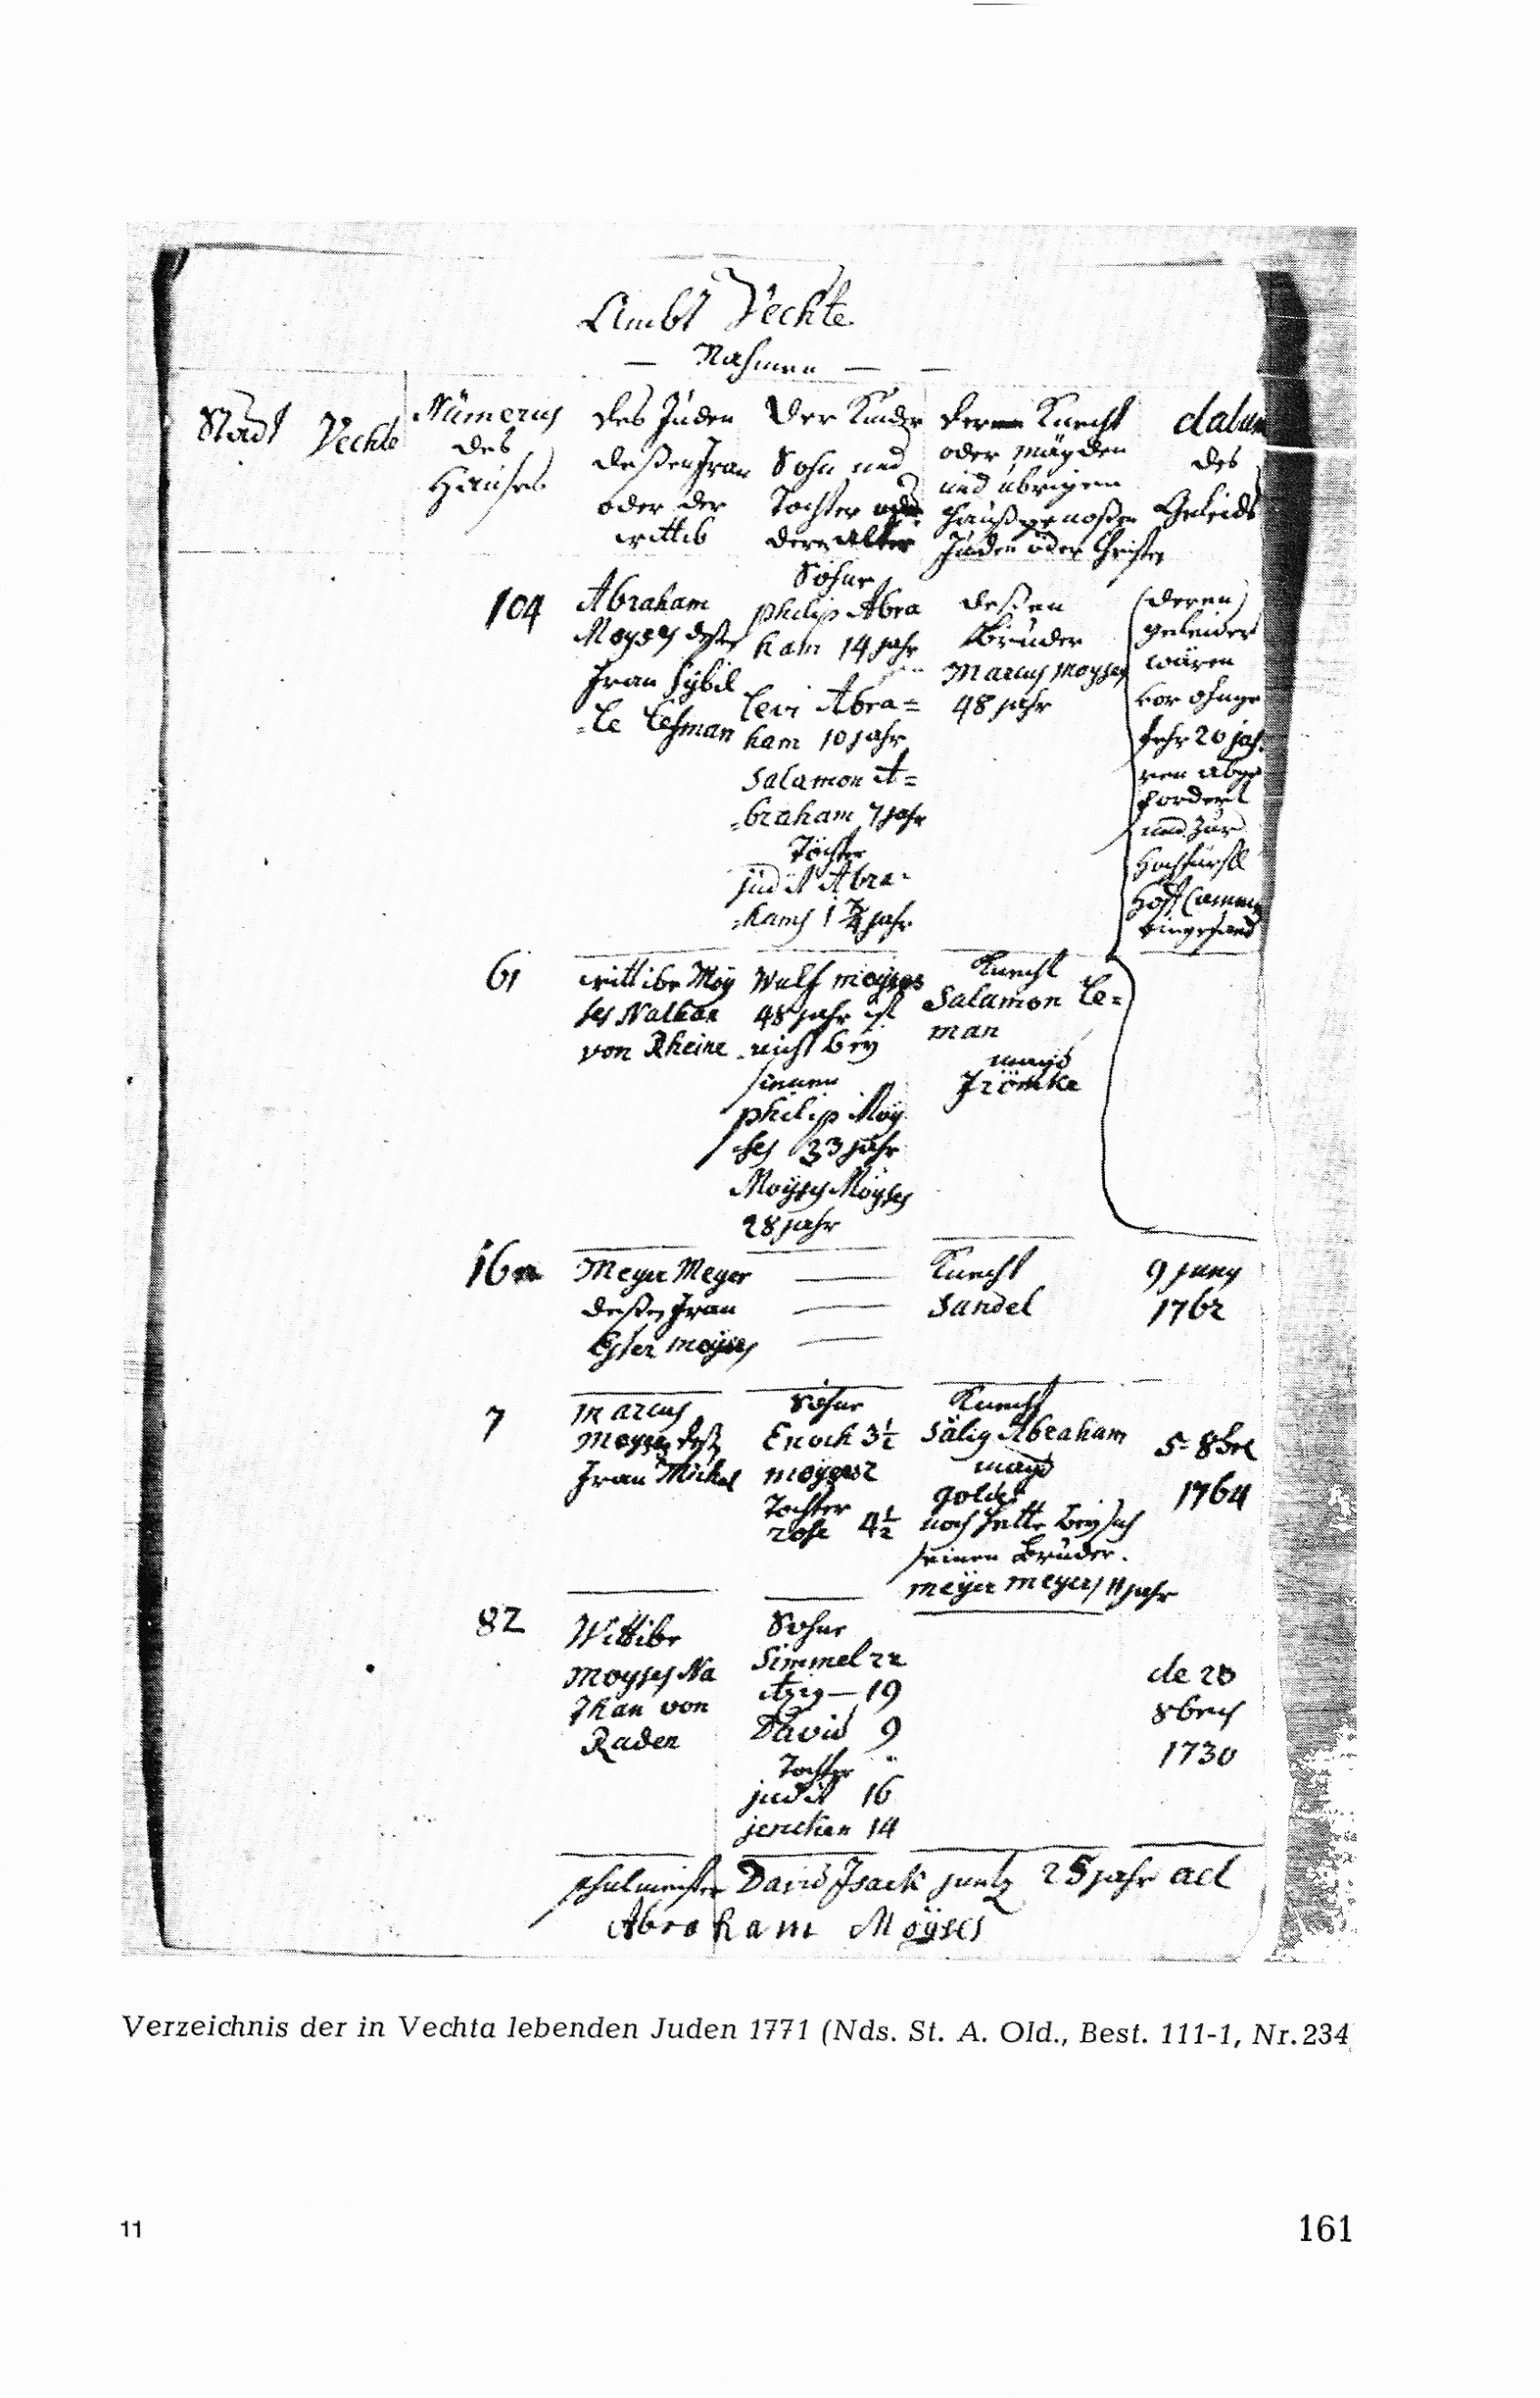 Ambt Vechte
— Nahmen — —
Stadt Vechte
Numerus
des
Hauses
des Juden
deßen Frau
oder der
wittib
der Kinder
Sohn und
Tochter oder
deren alter
deren Knecht
oder mägden
und übrigen
haußgenoßen
Juden oder Christen
datum
des
Geleids
104
Abraham
Moyses deßen
Frau Sybil
=le Lehman
Söhne
philip Abra
ham 14 jahr
Levi Abra=
ham 10 jahr
Salamon A=
=braham 7 jahr
Töchter
judit Abra=
=hams 1 3/4 jahr
deßen
Bruder
Marcus Moyses
48 jahr
(deren)
geleider
wären
vor ohnge
fehr 20 jah
ren abge
fordert
und zur
Hochfürstl
Hoff Camer
eingesand
61
wittibe Moy
ses Nathan
von Rheine
Wulf moyses
48 jahr ist
nicht bey
sinnen
philip Moy
ses 33 jahr
Moyses Moyses
28 jahr
Knecht
Salamon Le=
man
magd
Frömke
16
Meyer Meyer
deßen Frau
Ester moyses
Knecht
Sandel
9 juny
1762
7
Marcus
Moyses deßen
Frau Michel
Söhne
Enoch 3½
moyses 2
Tochter
rose 4½
Knecht
Sälig Abraham
magd
golde
noch hatte bey sich
seinen Bruder.
meyer meyers 11 jahr
5= 8bre
1764
82
Wittibe
Moyses Na
than von
Raden
Söhne
Simmel 22
Itzig — 19
David 9
Tochter
judit 16
jencken 14
de 20
8bris
1730
schulmeister David Isack 25 jahr ad
Abraham Moyses
Verzeichnis der in Vechta lebenden Juden 1771 (Nds. St. A. Old., Best. 111-1, Nr. 234
11
161